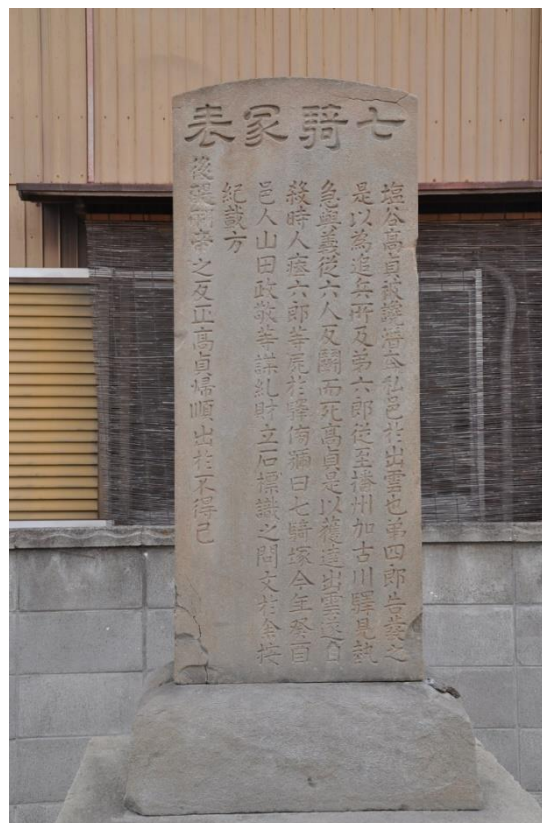 七騎冢表
塩谷高貞被讒潛奔私邑於出雲也弟四郎告發之
是以為追兵所及弟六郎從至播州加古川驛見執
急與義從六人反鬭而死高貞是以獲達出雲遂自
殺時人瘞六郎等屍於驛傍稱曰七騎塚今年癸酉
邑人山田政敬等謀糺財立石標識之問文於余按
紀載方
後醍醐帝之反正高貞帰順出於不得已